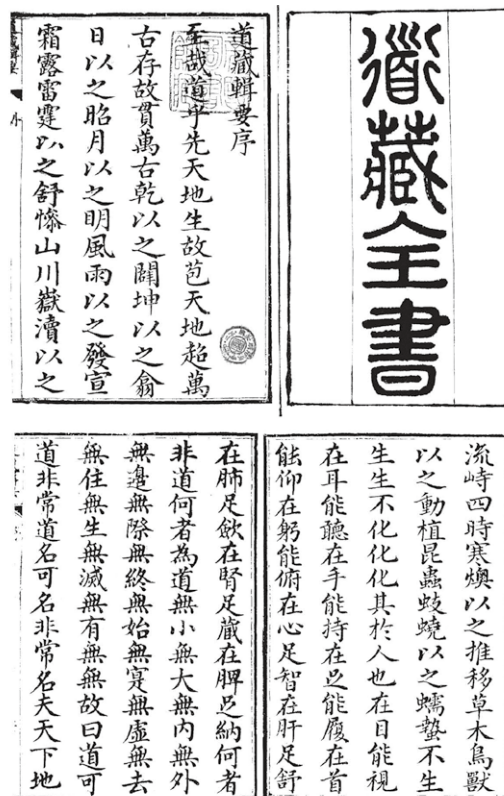 道藏全書
道藏輯要序
至哉道乎先天地生故苞天地超萬
古存故貫萬古乾以之闢坤以之翕
日以之昭月以之明風雨以之發宣
霜露雷霆以之舒慘山川嶽瀆以之
流峙四時寒燠以之推移草木鳥獸
以之動植昆蟲蚑蟯以之蠕蟄不生
生生不化化化其於人也在目能視
在耳能聽在手能持在足能履在首
能仰在躬能俯在心足智在肝足舒
在肺足歛在腎足藏在脾足納何者
非道何者為道無小無大無內無外
無邊無際無終無始無寔無虛無去
無住無生無滅無有無無故曰道可
道非常道名可名非常名夫天下地